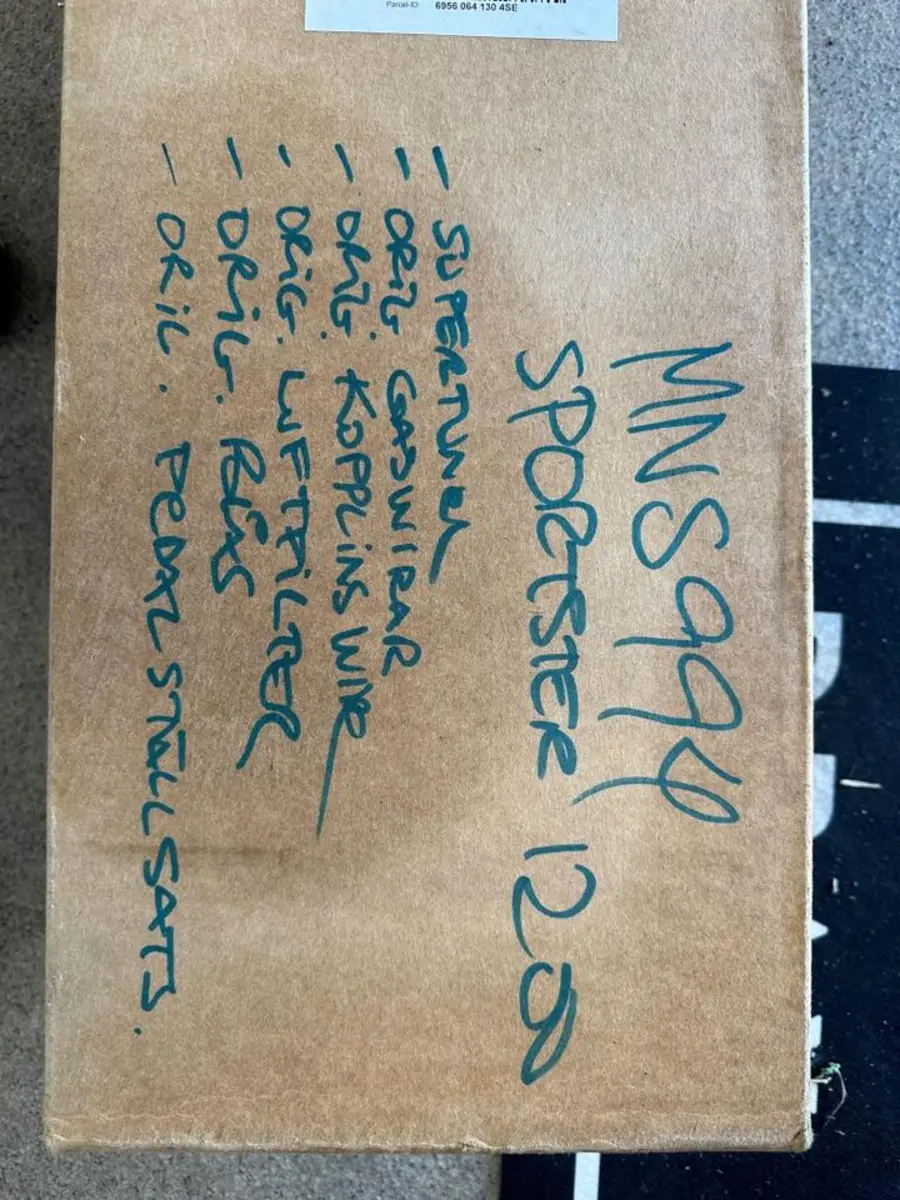 Parcel-ID: 6956 064 130 4SE
MNS994
SPORTSTER 1200
- SUPERTUNER
- ORIG. GASWIRAR
- ORIG. KOPPLINSWIRE
- ORIG. LUFTFILTER
- ORIG.
- ORIG. PEDALSTÄLLSATS.